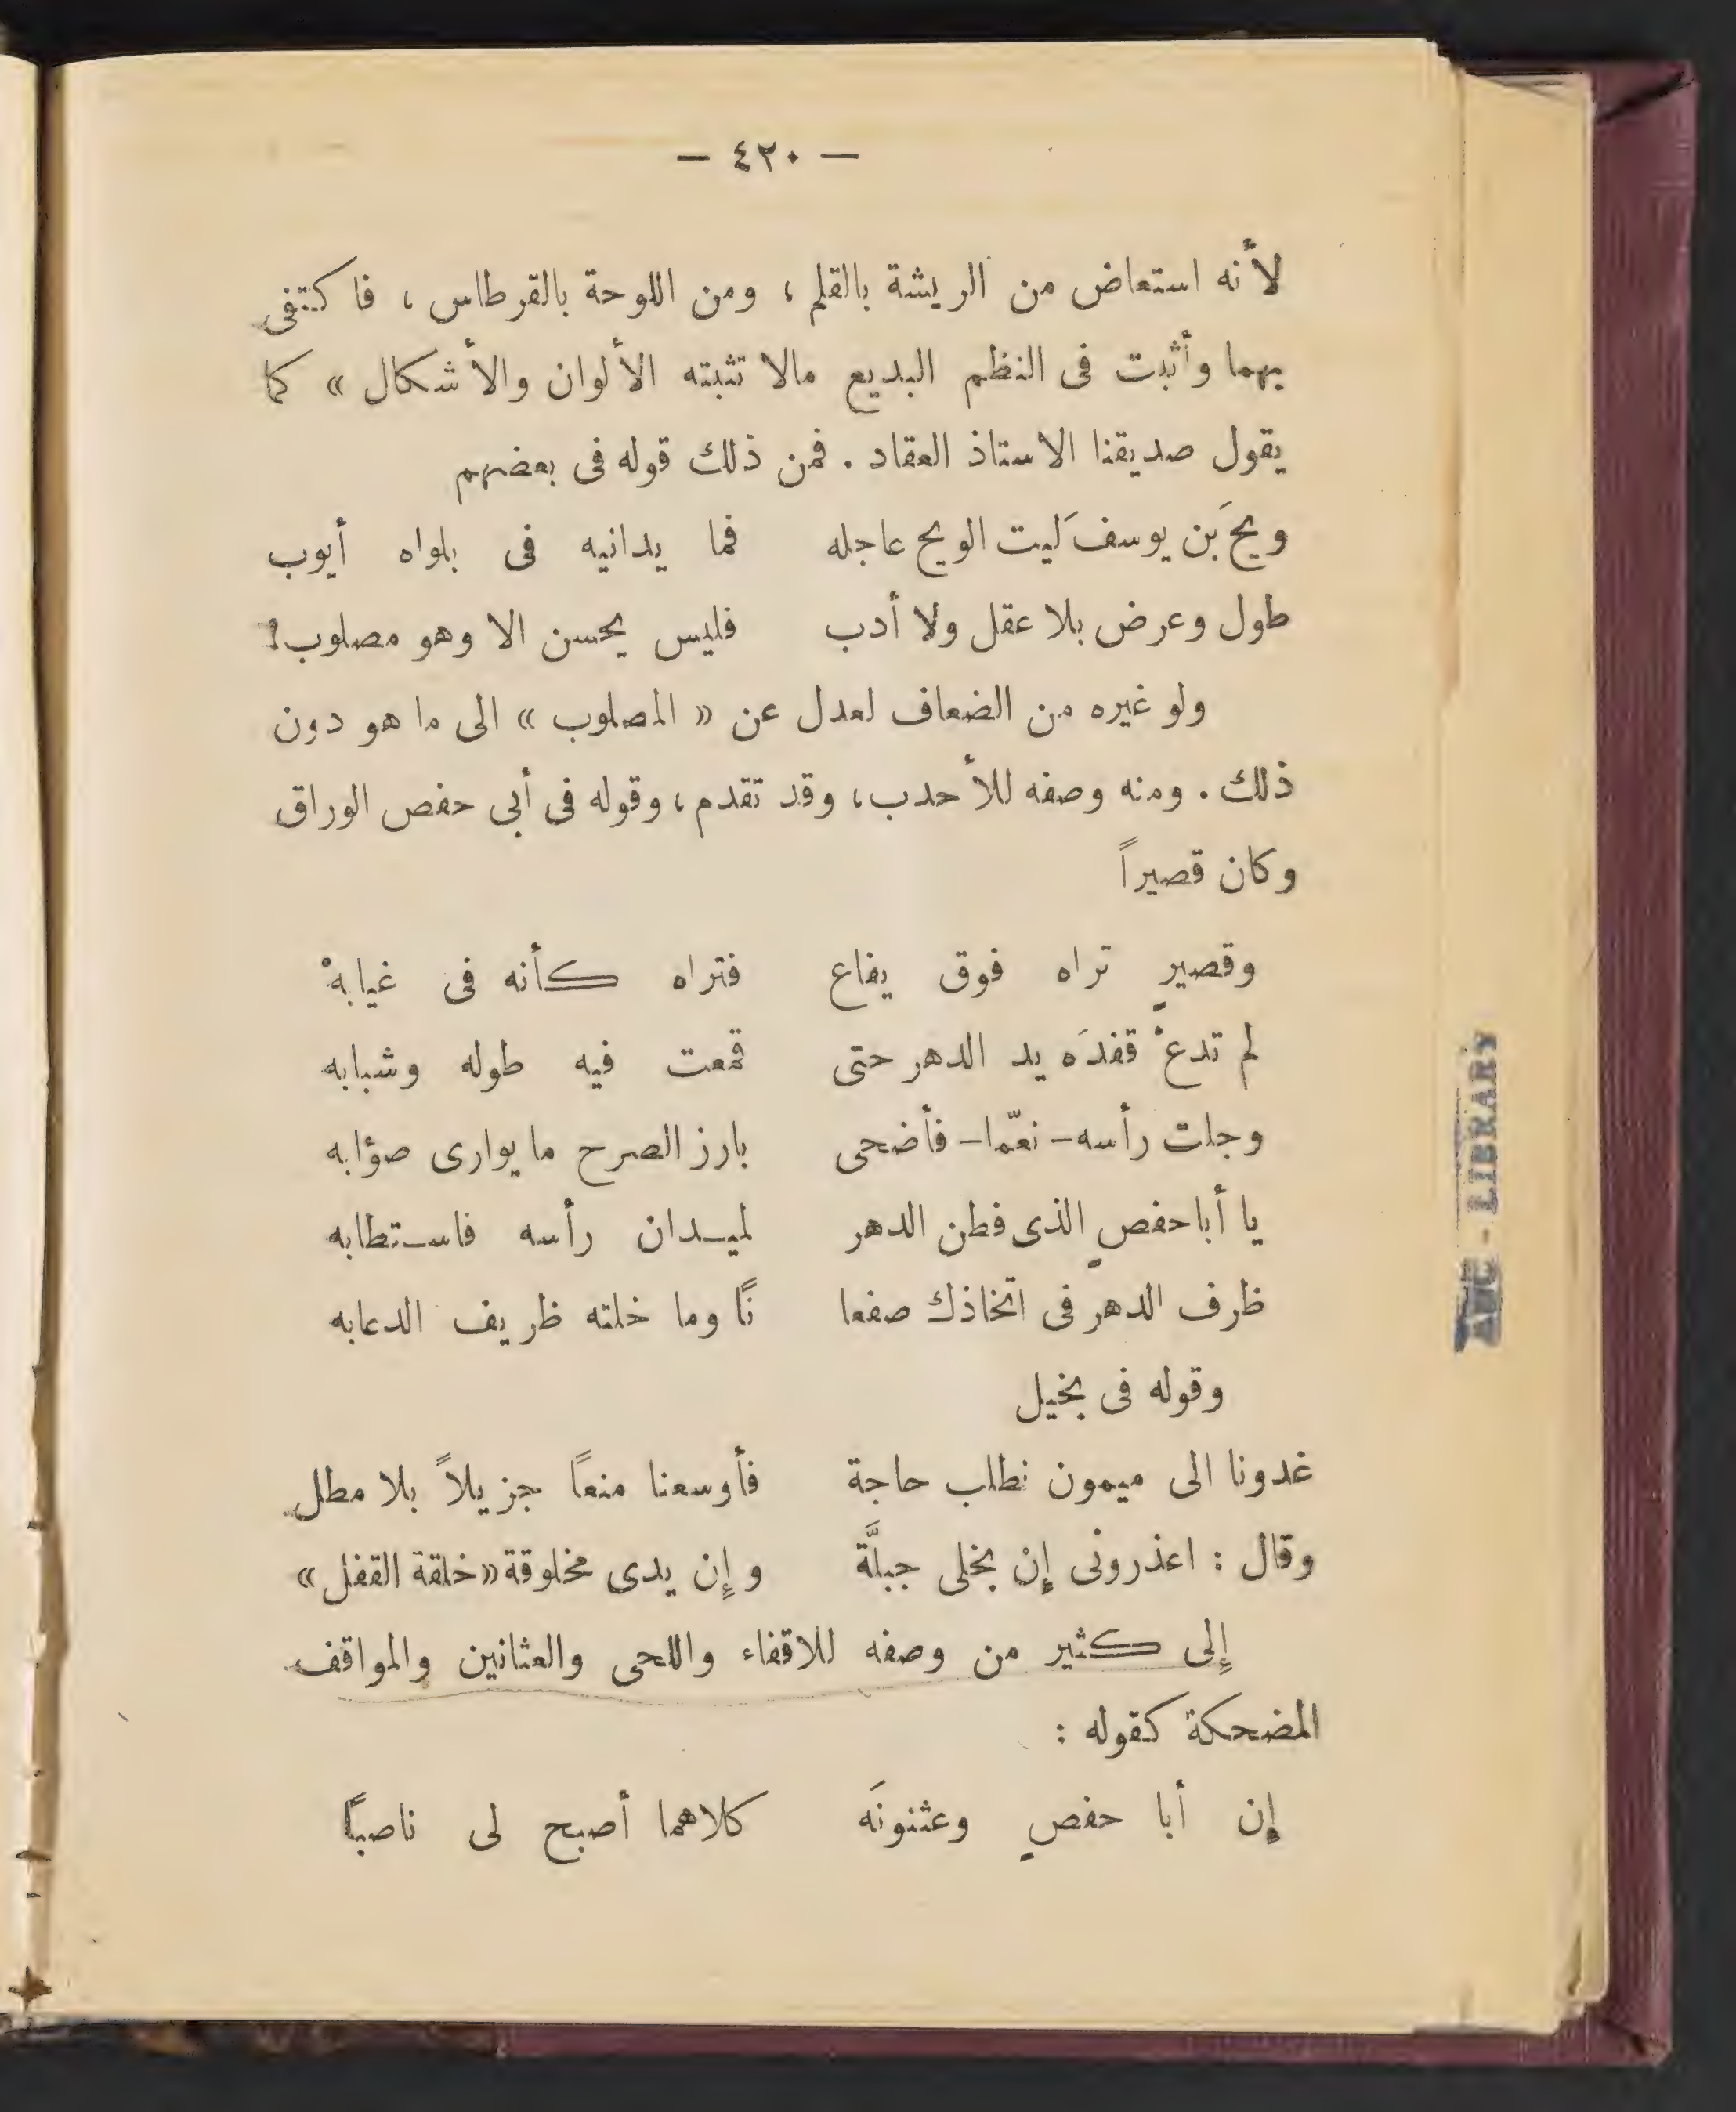 — ٤٢٠ —
لأنه استعاض من الريشة بالقلم ، ومن اللوحة بالقرطاس ، فاكتفى
بهما وأثبت فى النظم البديع مالا تثبته الألوان والأشكال » كما
يقول صديقنا الاستاذ العقاد . فمن ذلك قوله فى بعضهم
ويحَ بَن يوسف لَيت الويح عاجله فما يدانيه فى بلواه أيوب
طول وعرض بلا عقل ولا أدب فليس يحسن الا وهو مصلوب!
ولو غيره من الضعاف لعدل عن « المصلوب » الى ما هو دون
ذلك . ومنه وصفه للأحدب ، وقد تقدم ، وقوله فى أبى حفص الوراق
وكان قصيراً
وقصيرٍ تراه فوق يفاع فتراه كأنه فى غيابهْ
لم تدعْ قفدَه يد الدهر حتى قمعت فيه طوله وشبابه
وجلت رأسه – نعمّا – فأضحى بارز الصرح ما يوارى صؤابه
يا أبا حفصٍ الذى فطن الدهر لميدان رأسه فاستطابه
ظرف الدهر فى اتخاذك صفعا نًا وما خلته ظريف الدعابه
وقوله فى بخيل
غدونا الى ميمون نطلب حاجة فأوسعنا منعاً جزيلاً بلا مطل
وقال : اعذرونى إنْ بخلى جبلَّة وإن يدى مخلوقة «خلقة القفل»
إلى كثير من وصفه للاقفاء واللحى والعثانين والمواقف
المضحكة كقوله :
إن أبا حفصٍ وعثنونَه كلاهما أصبح لى ناصباً
AUC - LIBRARY